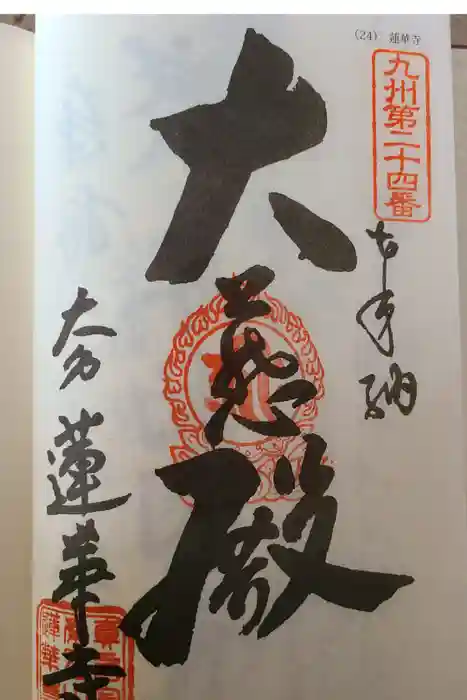 (24) 蓮華寺
九州第二十四番
奉納
大悲殿
大分 蓮華寺